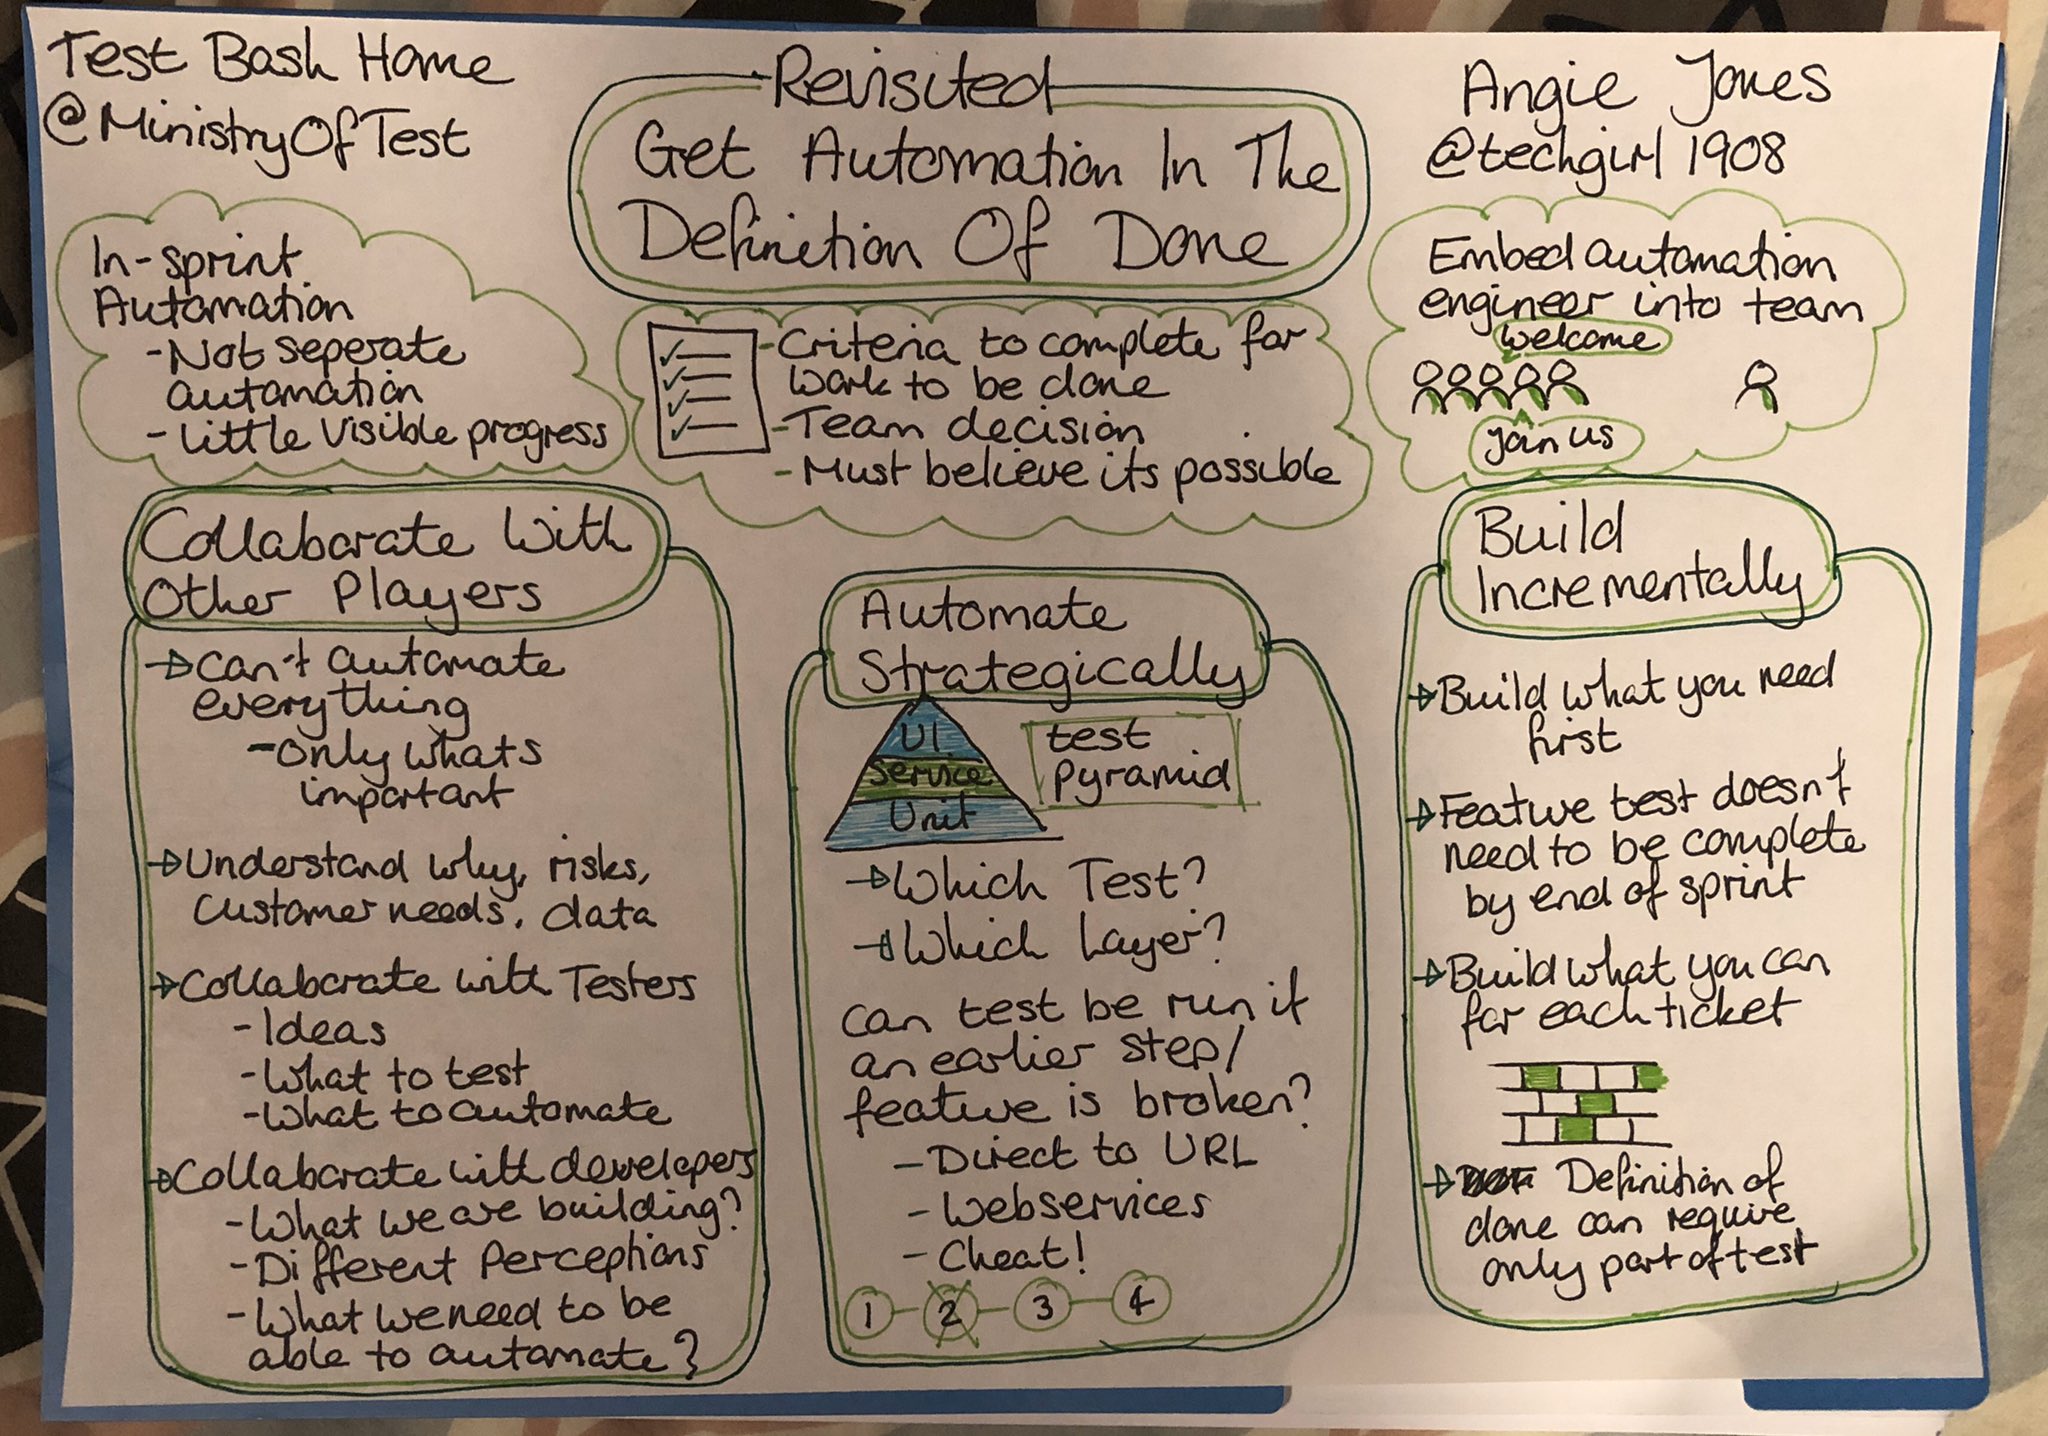 Test Bash Home
@MinistryOfTest
Revisited
Get Automation In The
Definition Of Done
Angie Jones
@techgirl1908
In-sprint
Automation
-Not seperate
automation
-Little visible progress
-Criteria to complete for
work to be done
-Team decision
-Must believe its possible
Embed automation
engineer into team
welcome
join us
Collaborate With
Other Players
Can't automate
everything
-only whats
important
Understand why, risks,
customer needs, data
Collaborate with Testers
-Ideas
-What to test
-What to automate
Collaborate with developers
-What we are building?
-Different Perceptions
-What we need to be
able to automate?
Automate
Strategically
UI
Service
Unit
test
pyramid
Which Test?
Which Layer?
Can test be run if
an earlier step/
feature is broken?
-Direct to URL
-Webservices
-Cheat!
1 2 3 4
Build
Incrementally
Build what you need
first
Feature test doesn't
need to be complete
by end of sprint
Build what you can
for each ticket
Definition of
done can require
only part of test